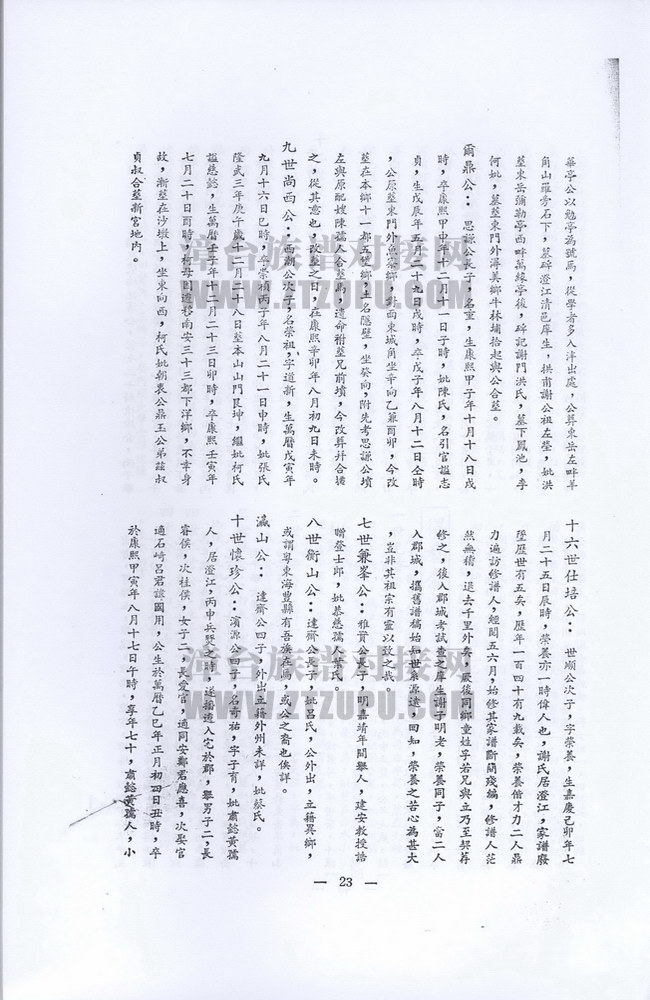 華亭公以勉亭為號焉，從學者多入泮出處，公葬東岳左畔羊
角山羅旁石下，墓碑澄江清邑庠生，拱甫謝公祖左塋，妣洪
墓東岳彌勒亭西畔萬緣亭後，碑記謝門洪氏，墓下鳳池，李
何妣，墓葬東門外得美鄉牛林埔拾起與公合葬。
爾鼎公： 思謙公長子，名重，生康熙甲子年十月十八日戌
時，卒康熙甲申年十二月十一日子時，妣陳氏，名引官諡志
貞，生戊辰年五月二十九日戌時，卒戊子年八月十二日仝時
，公原葬東門外魚寮鄉，扒西東城角坐辛向乙兼酉卯，今改
葬在本鄉十一都五塋鄉，土名隱壁，坐癸向，附先考思謙公墳
左與原配嫂陳孺人合葬焉，遺命祔葬兄前墳，今改葬幷合攏
之，從其意也，改葬之日，在康熙辛卯年八月初九日未時。
九世尚西公：西湖公次子，名榮祖，字道新，生萬曆戊寅年
九月十六日巳時，卒崇禎丙子年八月二十一日申時，妣張氏
隆武三年庚午歲十二月二十八日葬本山山門艮坤，繼妣柯氏
諡慈懿，生萬曆壬子年十二月二十三日卯時，卒康熙壬寅年
七月二十日酉時，柯母因遷移南安三十三都下洋鄉，不幸身
故，漸葬在沙墩上，坐東向西，柯氏妣朝衷公鼎玉公弟茲叔
貞叔合葬新宮地內。
十六世仕培公： 世順公次子，字榮養，生嘉慶己卯年七
月二十五日辰時，榮養亦一時偉人也，謝氏居澄江，家譜廢
墜歷世有五矣，歷年一百四十有九載矣，榮養偕才力二人鼎
力遍訪修譜人，經閱五六月，始修其家譜斷簡殘編，修譜人茫
然無稽，退去千里外矣，厥後同鄉童姓孚若兄與立乃至契葬
修之，後入郡城考試查之庠生謝子明老，榮養同子，當二人
入郡城，攜舊譜稿始知世系源遠，回知，榮養之苦心為甚大
，豈非其祖宗有靈以致之哉。
七世兼峯公：雅賁公長子，明嘉靖年間舉人，建安教授誥
贈登士郎，妣恭慈孺人葉氏。
八世衡山公： 達齊公次子，妣呂氏，公外出，立籍異鄉，
或謂粵東海豐縣有吾族在焉，或公之裔也俟詳。
瀛山公： 達齋公四子，外出立籍外州未詳，妣蔡氏。
十世懷珍公： 濱源公四子，名奇祐，字子育，妣肅懿黃孺
人，居澄江，丙申兵燹之時，遂播遷入宅於郡，舉男子二，長
睿侯，次柱侯，女子二，長愛官，適同安鄭君應喜，次娶官
適石崎呂君諱國用，公生於萬曆乙巳年正月初四日丑時，卒
於康熙甲寅年八月十七日午時，享年七十，肅懿黃孺人，小
— 23 —
漳台族谱对接网
WWW.ZTZUPU.COM
漳台族谱对接网
WWW.ZTZUPU.COM